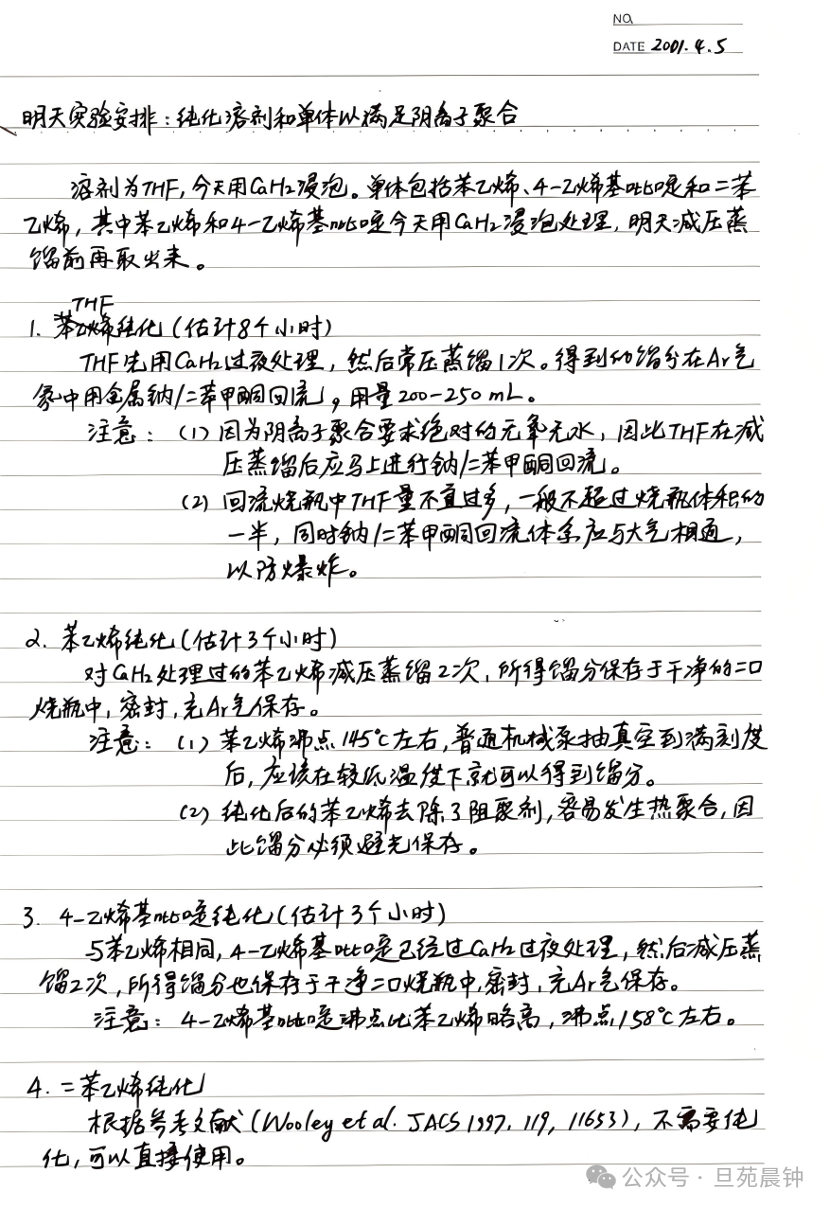 NO.
DATE 2001.4.5
明天实验安排：纯化溶剂和单体以满足阴离子聚合
溶剂为THF，今天用CaH2浸泡。单体包括苯乙烯、4-乙烯基吡啶和二苯
乙烯，其中苯乙烯和4-乙烯基吡啶今天用CaH2浸泡处理，明天减压蒸
馏前再取出来。
THF
1. 苯乙烯纯化（估计8个小时）
THF先用CaH2过夜处理，然后常压蒸馏1次。得到的馏分在Ar气
象中用金属钠/二苯甲酮回流，用量200-250 mL。
注意：（1）因为阴离子聚合要求绝对的无氧无水，因此THF在减
压蒸馏后应马上进行钠/二苯甲酮回流。
（2）回流烧瓶中THF量不宜过多，一般不超过烧瓶体积的
一半，同时钠/二苯甲酮回流体系应与大气相通，
以防爆炸。
2. 苯乙烯纯化（估计3个小时）
对CaH2处理过的苯乙烯减压蒸馏2次，所得馏分保存于干净的二口
烧瓶中，密封，充Ar气保存。
注意：（1）苯乙烯沸点145℃左右，普通机械泵抽真空到满刻度
后，应该在较低温度下就可以得到馏分。
（2）纯化后的苯乙烯去除了阻聚剂，容易发生热聚合，因
此馏分必须避光保存。
3. 4-乙烯基吡啶纯化（估计3个小时）
与苯乙烯相同，4-乙烯基吡啶已经过CaH2过夜处理，然后减压蒸
馏2次，所得馏分也保存于干净二口烧瓶中，密封，充Ar气保存。
注意：4-乙烯基吡啶沸点比苯乙烯略高，沸点158℃左右。
4. 二苯乙烯纯化
根据参考文献（Wooley et al. JACS 1997, 119, 11653），不需要纯
化，可以直接使用。
公众号·旦苑晨钟